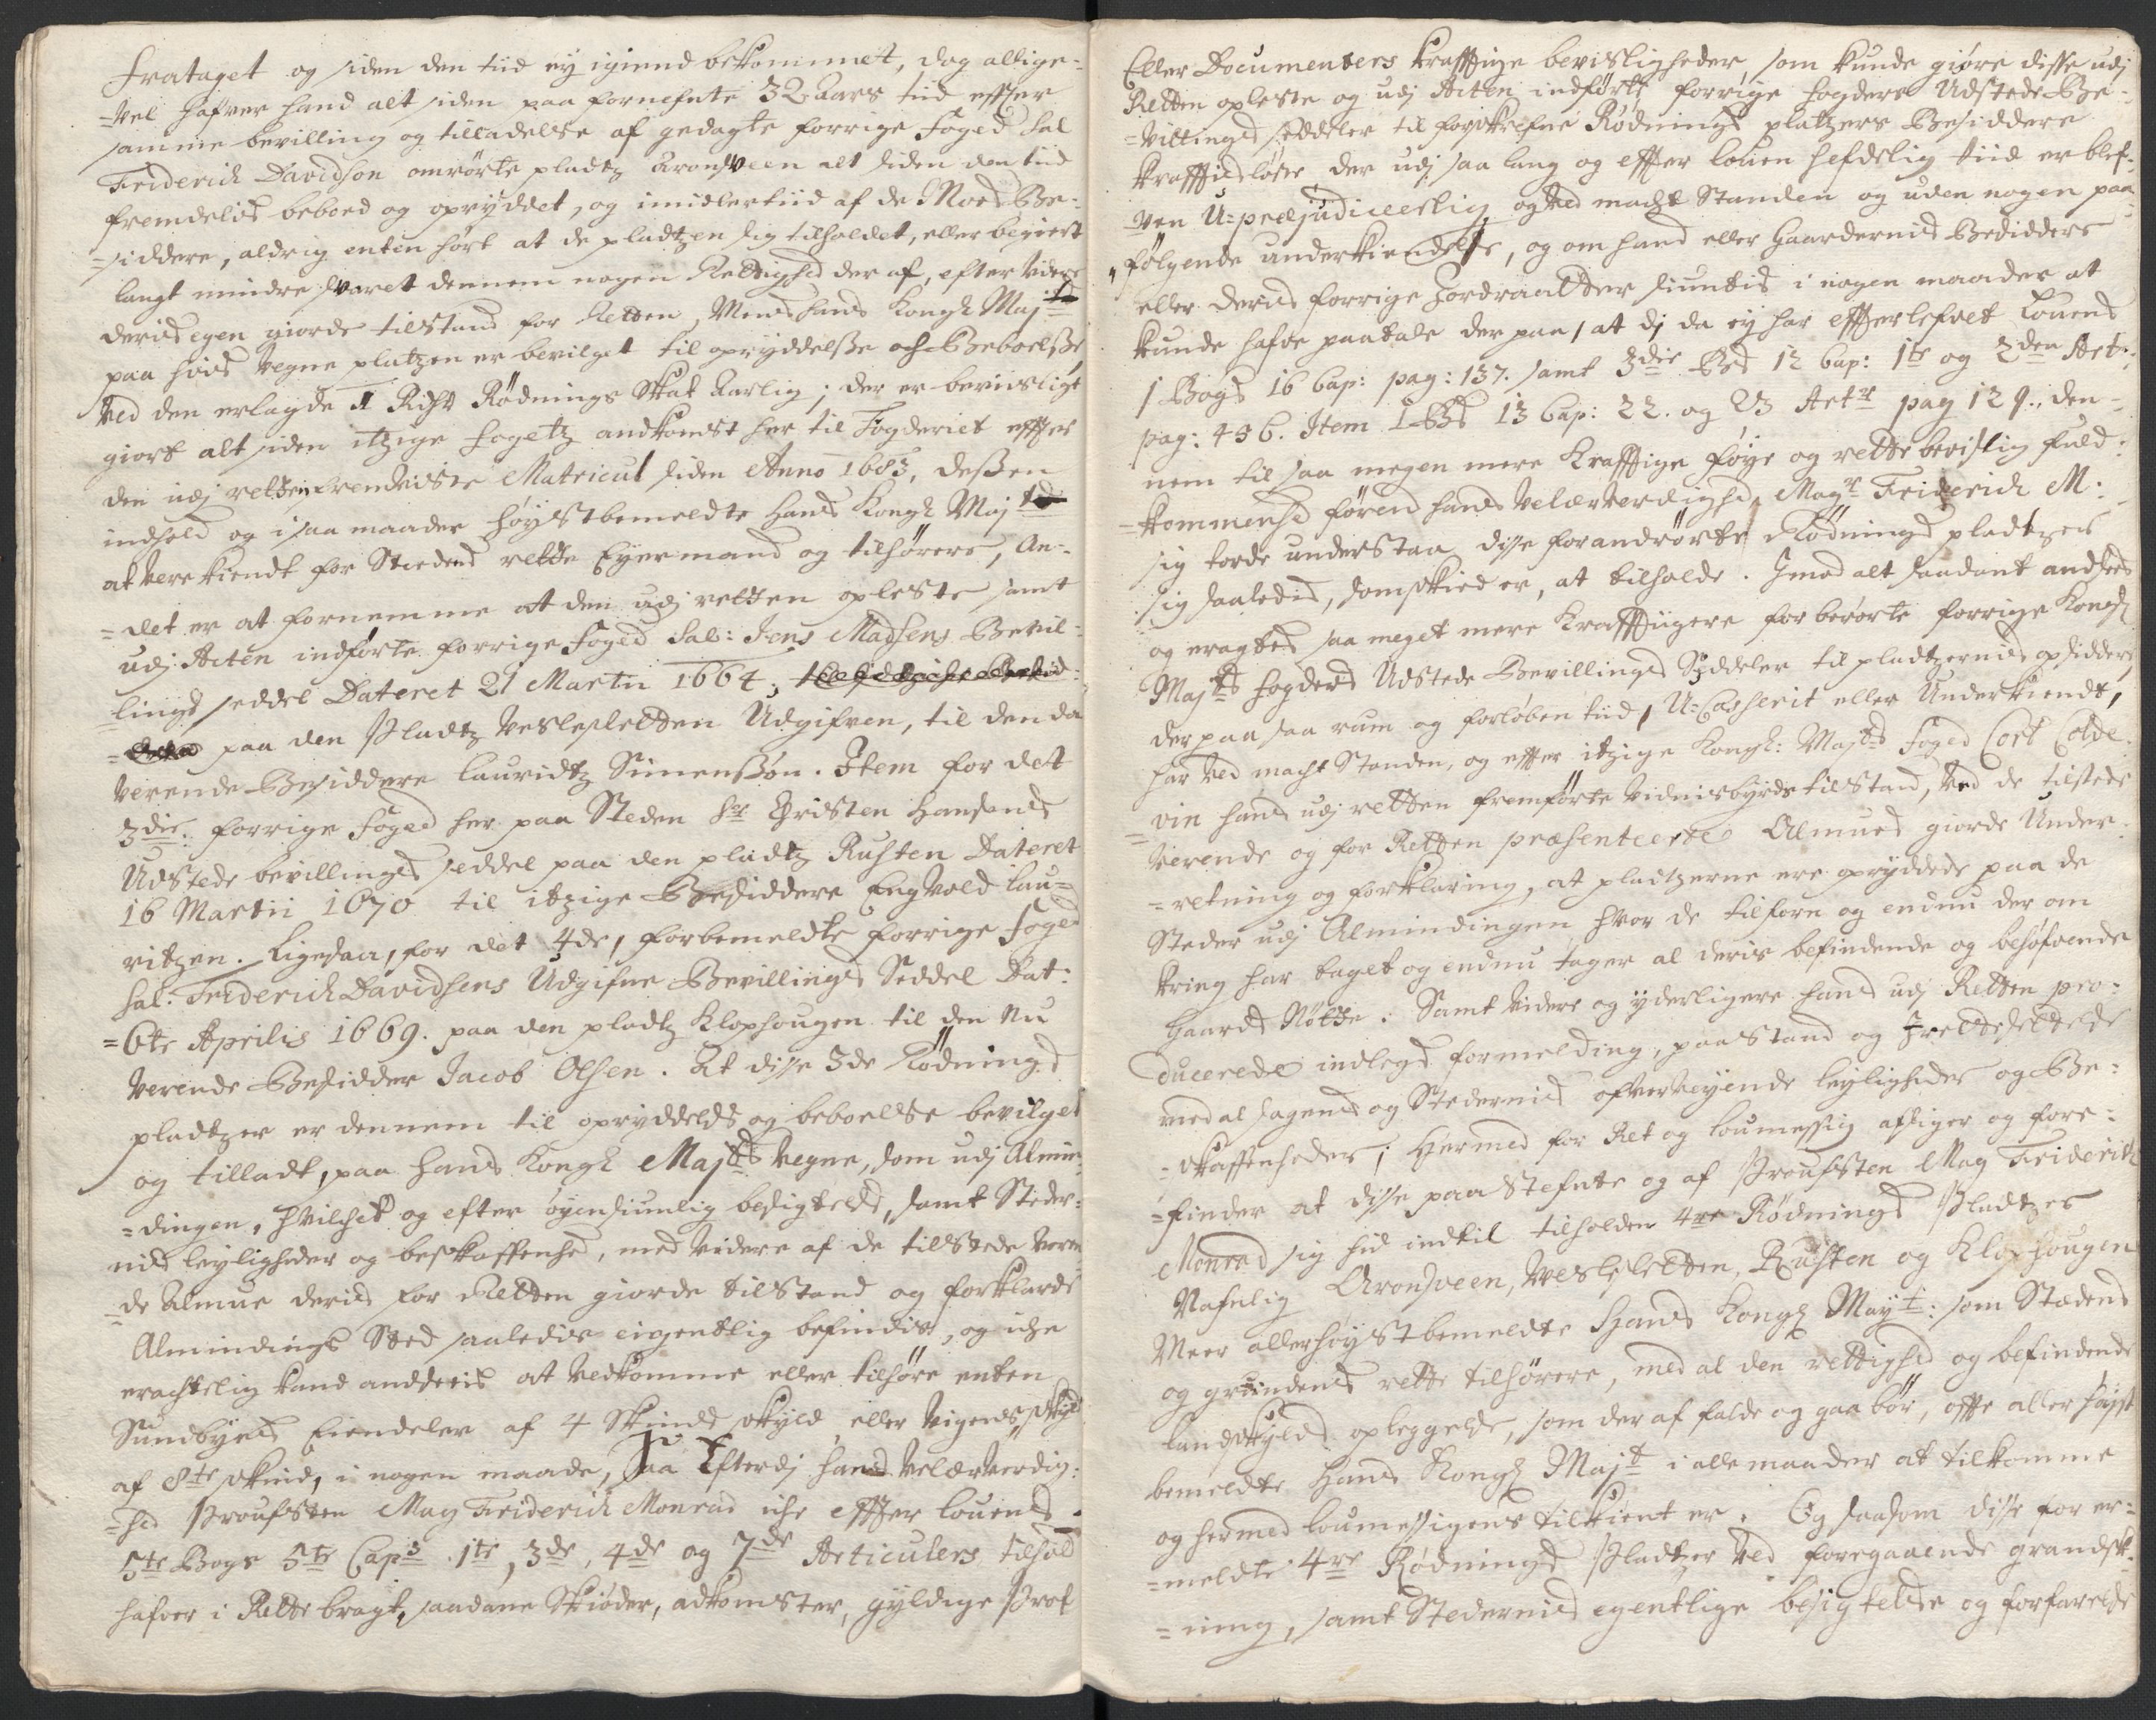 frataget og siden den tiid ey igiend bekommet, dog allige-
=vel hafver hand alt siden paa fornefnte 32 Aars tiid effter
samme bevilling og tilladelse af gedagte forrige Foged Sal
Friderich Davidsøn anrørte pladtz Aronsveen alt siden den tiid
fremdelis beboed og opryddet, og imidlertiid af de Moes Be-
=siddere, aldrig enten hørt at de pladtzen sig tilholdet, eller begiert
langt mindre svaret dennem nogen Rettighed der af, efter videre
deris egen giorde tilstand for Retten, Mens hans Kongl Maj:ts
paa hvis vegne platzen er bevilget til opryddelsße och Beboelsße
ved den erlagde 1 Rdlr Rødnings Skat Aarlig; der er beviisligt
giort alt siden itzige fogetz andkomst her til Fogderiet effter
den udj retten fremviste Matricul siden Anno 1683, deßen
indhold og i saa maader høystbemeldte Hans Kongl Maj:ts
at vere kiendt for Stedens rette Eyermand og tilhørere, An-
=det er at fornemme at den udj retten opleste samt
udj Acten indførte forrige Foged Sal: Jens Madsens Bevil-
lings seddel Dateret 21 Martii 1664,
paa den Pladtz Vesleslettten Udgifven, til den da
verende Besiddere Lauridtz Simenßøn. Item for det
3die. forrige Foged her paa Steden Sr Christen Hansens
Udstede bevillings seddel paa den pladtz Rusten Dateret
16 Martii 1670 til itzige Besiddere Engvold Lau=
ritzen. Ligesaa, for det 4de, forbemeldte forrige foged
Sal. Friderich Davidsens Udgifne Bevillings Seddel Dat:
=6te Aprilis 1669. paa den pladtz Klophougen til den Nu
verende Besidder Jacob Olsen. At disse 3de Rødnings
pladtzer er dennem til opryddelse og beboelse bevilget
og tilladt, paa Hans Kongl Maj:ts Vegne, som udj Almin-
=dingen, Hvilchet og efter øyensiunlig besigtelse, samt Steder-
nis leyligheder og beskaffenhed, med videre af de tilstede veren-
=de Almue deris for Retten giorde tilstand og forklarede
Almindings Sted saaledis eigentlig befindis, og iche
erachtelig kand andderis at vedkomme eller tilhøre enten
Sundbyes Eiendeler af 4 Skinds skyld eller Vigens skyld
af 8te skind, i nogen maade, Saa Efterdj hans Velærverdig-
=hed Proufsten Mag Friderich Monrad iche effter louens
5te Bogs 5te Cap:s 1te, 3de, 4de og 7de Articulers tilhold
hafver i Rette bragt, saadane Skiøder, adkomster, gyldige Prot
Eller Documenters krafftige bevisligheder, som kunde giøre disse udj
Retten opleste og udj Acten indførte forrige fogders Udstede Be-
=villings sedler til forskrefne Rødnings platzers Besiddere
krafftesløse der udj saa lang og effter louen hefdelig tiid er blef-
ven U-præjudiceerlig og ved magt Standen og uden nogen paa-
følgende underkiendelse, og om hand eller Gaardernis Besiddere
eller deris forrige Fordraatder siuntis i nogen maader at
kunde hafve paatale der paa, at dj da ey har effterlefvet Louens
1 Bogs 16 Cap: pag: 137. samt 3die B:s 12 Cap: 1te og 2den Art:
pag: 456. Item 1 B:s 13 Cap: 22. og 23 Art:r pag 129., den-
nem til saa megen mere krafftige føye og rette bevislig fuld:
=kommenhed førend hans Velærverdighed Mag:r Friderich M:
sig torde understaa disse forandrørte Rødnings pladtzer
sig saaledis, som skied er, at tilholde. Imod alt saadant andsees
og eragtes saa meget mere krafftigere forberørte forrige Kongl
Maj:ts fogders Udstede Bevillings Seddeler til pladtzernis opsiddere
der paa saa rum og forløben tiid, U-Casserit eller Underkiendt,
har ved magt Standen, og effter itzige Kongl: Maj:ts foged Cort Colde-
=vin hans udj retten fremførte vidnisbyrds tilstand, ved de tilstede
verende og for Retten præsenteerede Almues giorde Under-
=retning og forklaring, at pladtzerne ere opryddede paa de
Steder udj Almindingen hvor de tilforn og endnu der om
kring har taget og endnu tager al deris befindende og behøfvende
Gaards Nøtte. Samt videre og yderligere hans udj Retten pro-
ducerede indlegs formelding, paastand og
med al sagens og Stedernis ofverveyende leyligheder og Be-
=skaffenheder; Hermed for Ret og loumessig afsiger og fore-
=finder at disse paastefnte og af Proufsten Mag Friderich
Monrad sig hid indtil tilholden 4re Rødnings Pladtzer
Nafnlig Aronsveen, Vesleslettten, Rusten og Klophougen
Meer allerhøystbemeldte Hans Kongl May:t: som Stædens
og grundens rette tilhørere, med al den rettighed og befindende
landskylds opleggelse, som der af falde og gaa bør, ofte allerhøyst
bemeldte Hans Kongl Maj:t i alle maader at tilkomme
og hermed loumessigens tilkient er. Og saasom disse for er-
=meldte 4re Rødnings Pladtzer ved foregaaende grandsk-
=ning, samt Stedernis egentlige besigtelse og forfarelse